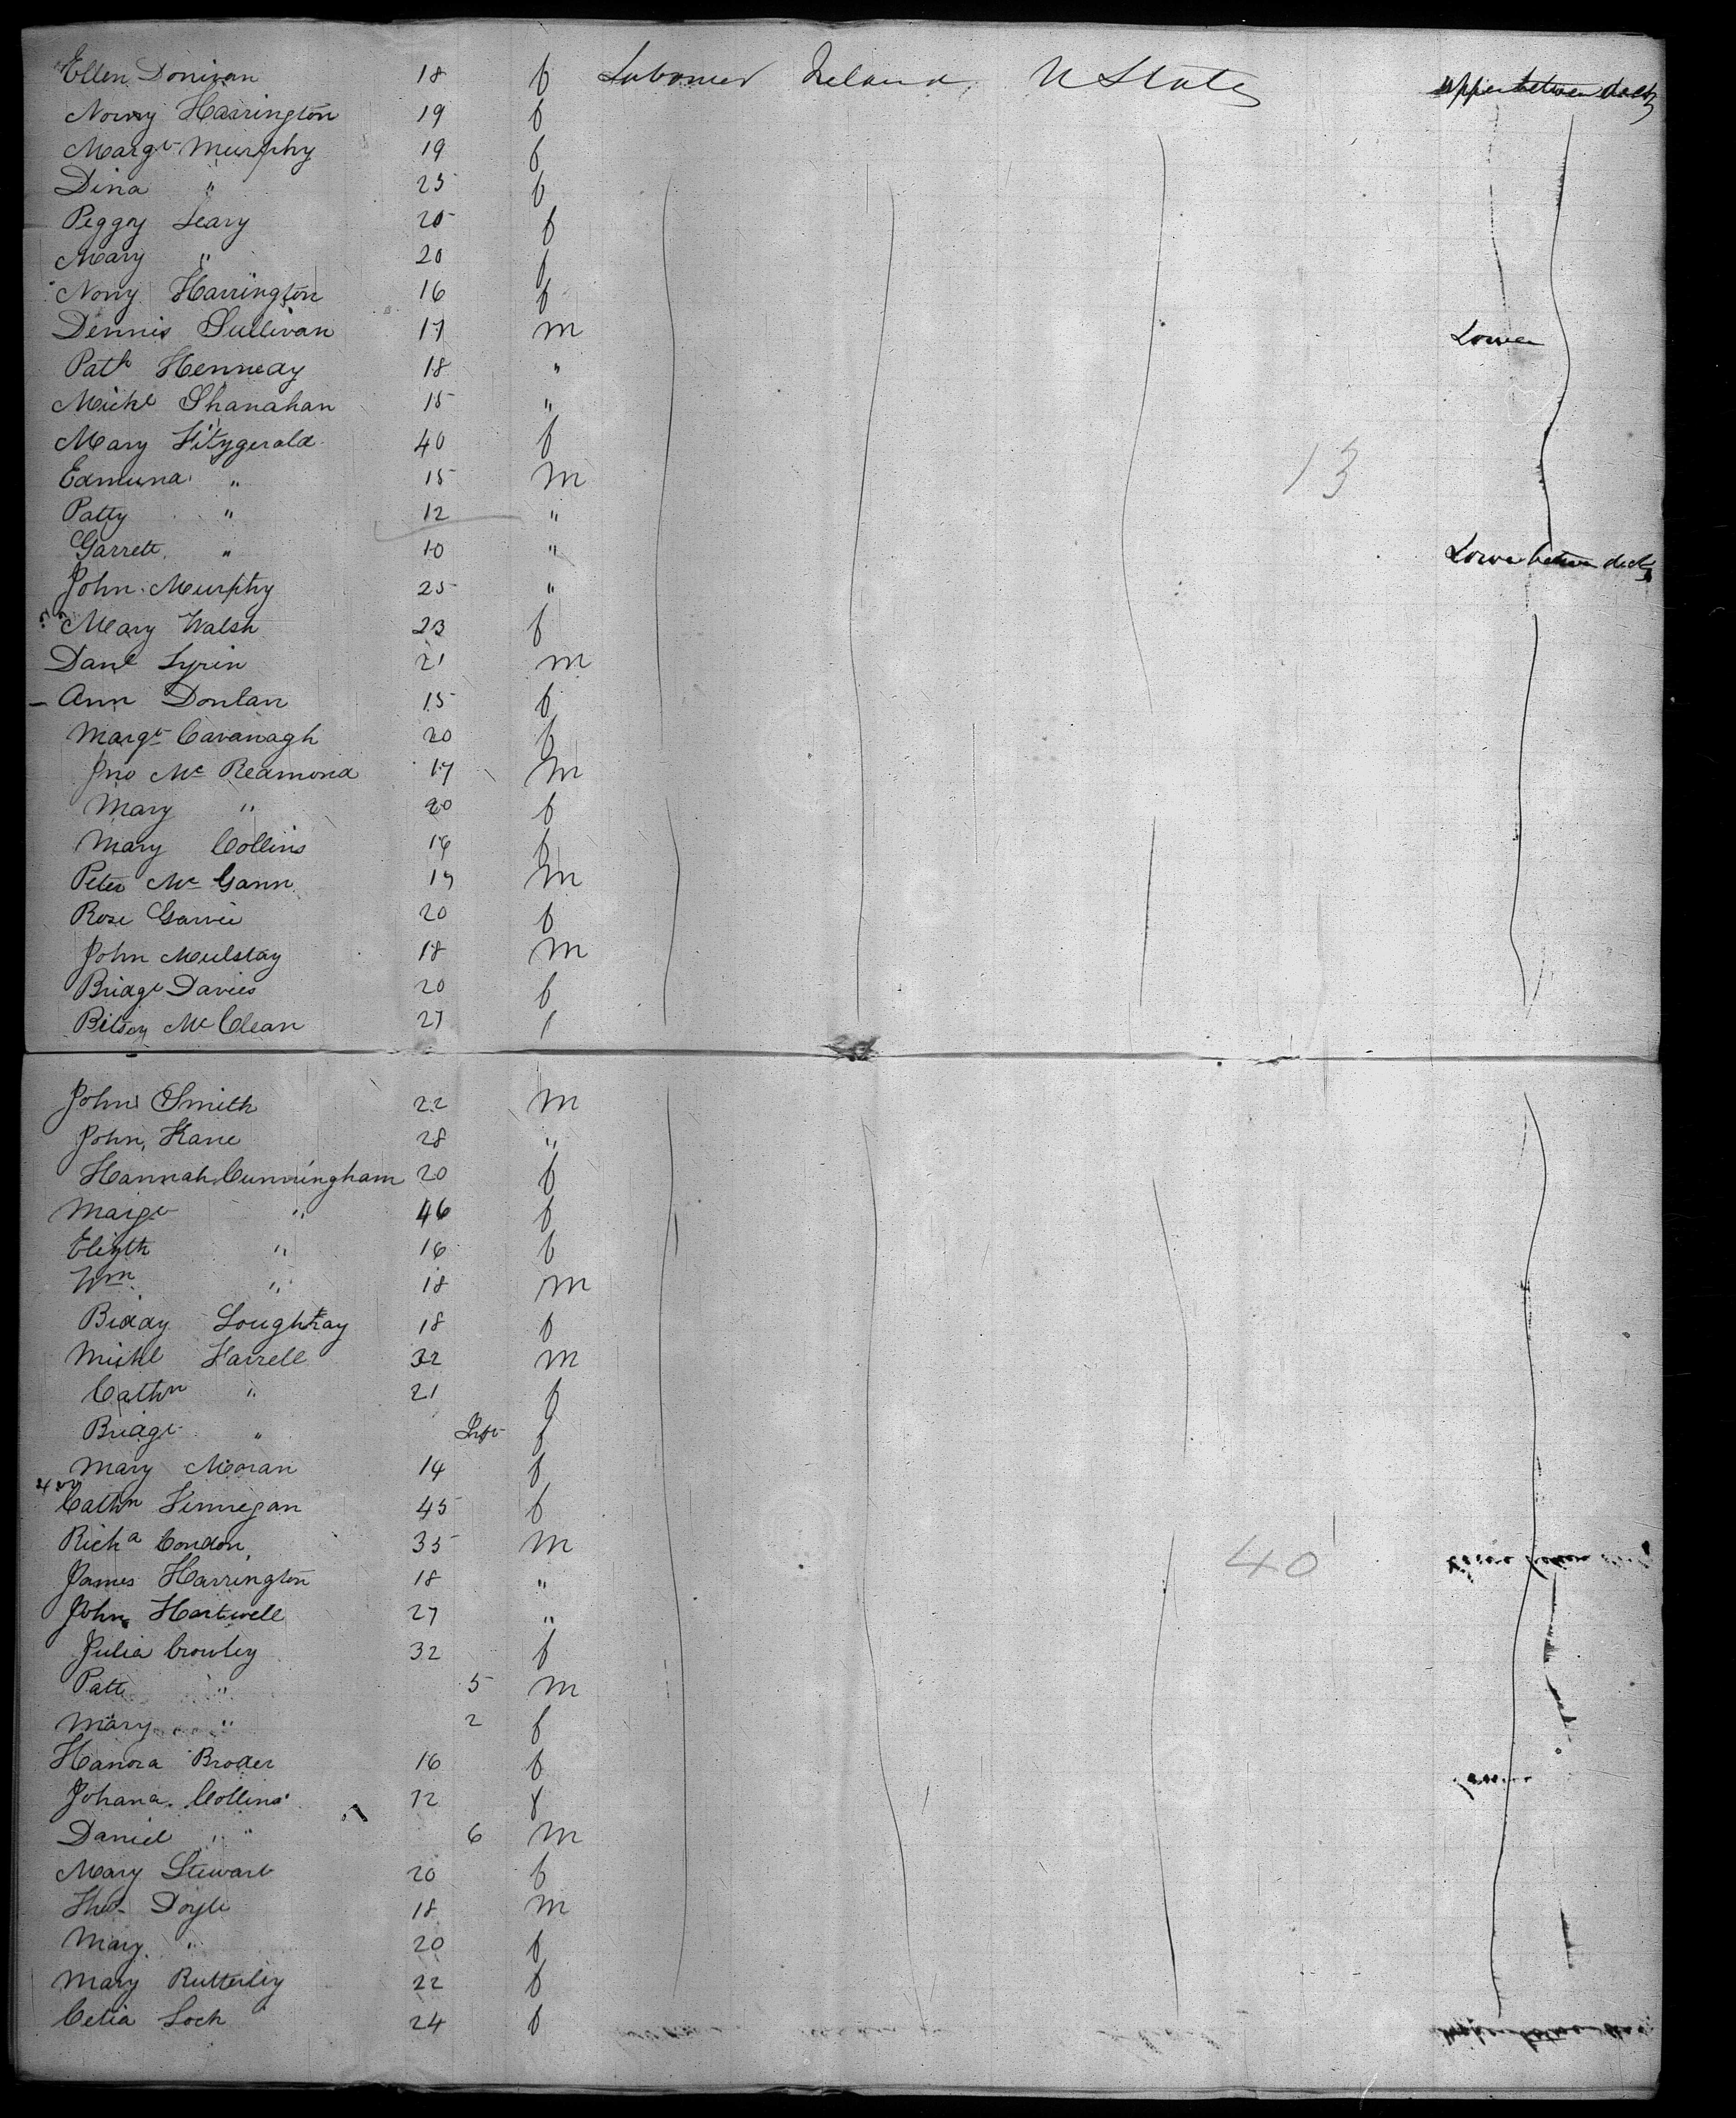 Ellen Donivan 18 f Labourer Ireland, U States upper between decks
Norry Harrington 19 f
Margt Murphy 19 f
Dina " 25 f
Peggy Leary 20 f
Mary " 20 f
Norry Harrington 16 f
Dennis Sullivan 17 m Lower
Patk Kennedy 18 "
Michl Shanahan 15 "
Mary Fitzgerald 40 f
Edmund " 15 m 13
Patty " 12 "
Garrett " 10 " Lower between decks
John Murphy 25 "
Mary Walsh 23 f
Danl 21 m
Ann Donlan 15 f
Margt Cavanagh 20 f
Jno Mc Redmond 17 m
Mary " 20 f
Mary Collins 16 f
Peter Mc Gann 17 m
Rose Garvie 20 f
John 18 m
Bridgt Davies 20 f
Betsey Mc Clean 27 f
John Smith 22 m
John Kane 28 "
Hannah Cunningham 20 f
Margt " 46 f
Elizth " 16 f
Wm " 18 m
Biddy 18 f
Michl Farrell 32 m
Cathn " 21 f
Bridgt " Inft f
Mary Moran 14 f
Cathn Finnegan 45 f
Richd Condon 35 m 40
James Harrington 18 "
John Hartwell 27 "
Julia Crowley 32 f
Patt " 5 m
Mary " 2 f
Hanora Broder 16 f
Johana Collins 12 f
Daniel " 6 m
Mary Stewart 20 f
Thos Doyle 18 m
Mary " 20 f
Mary Rutterley 22 f
Celia Loch 24 f